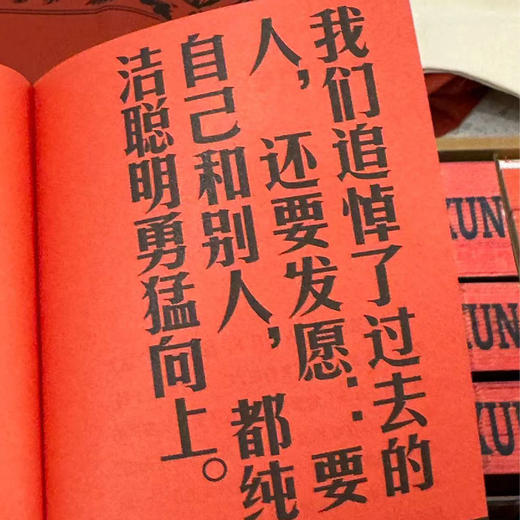 我们追悼了过去的
人，还要发愿：要
自己和别人，都纯
洁聪明勇猛向上。
KUN
KUN
KUN